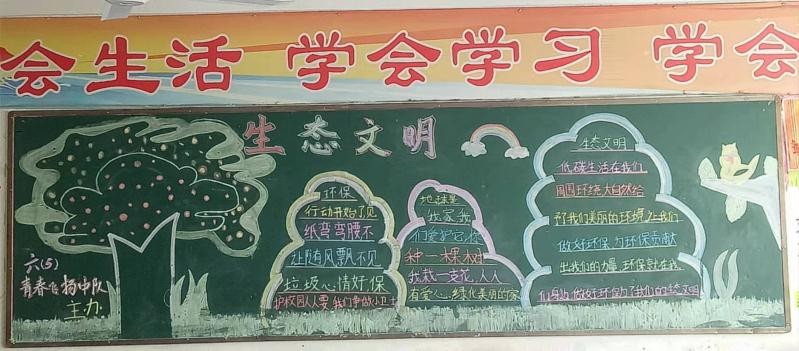 会生活 学会学习 学会
生态文明
六(5)
青春飞扬中队
主办
环保
行动开始了见
纸弯弯腰不
让随风飘不见
垃圾心情好,保
护校园人人要 我们争做小卫士
地球是
我家我
们爱护它,你
种一棵树
我栽一支花,人人
有爱心,绿化美丽的家
生态文明
低碳生活在我们
周围环绕大自然给
予了我们美丽的环境让我们
做好环保 为环保贡献
出我们的力量 环保就在我
们身边 做好环保为了我们的生态文明